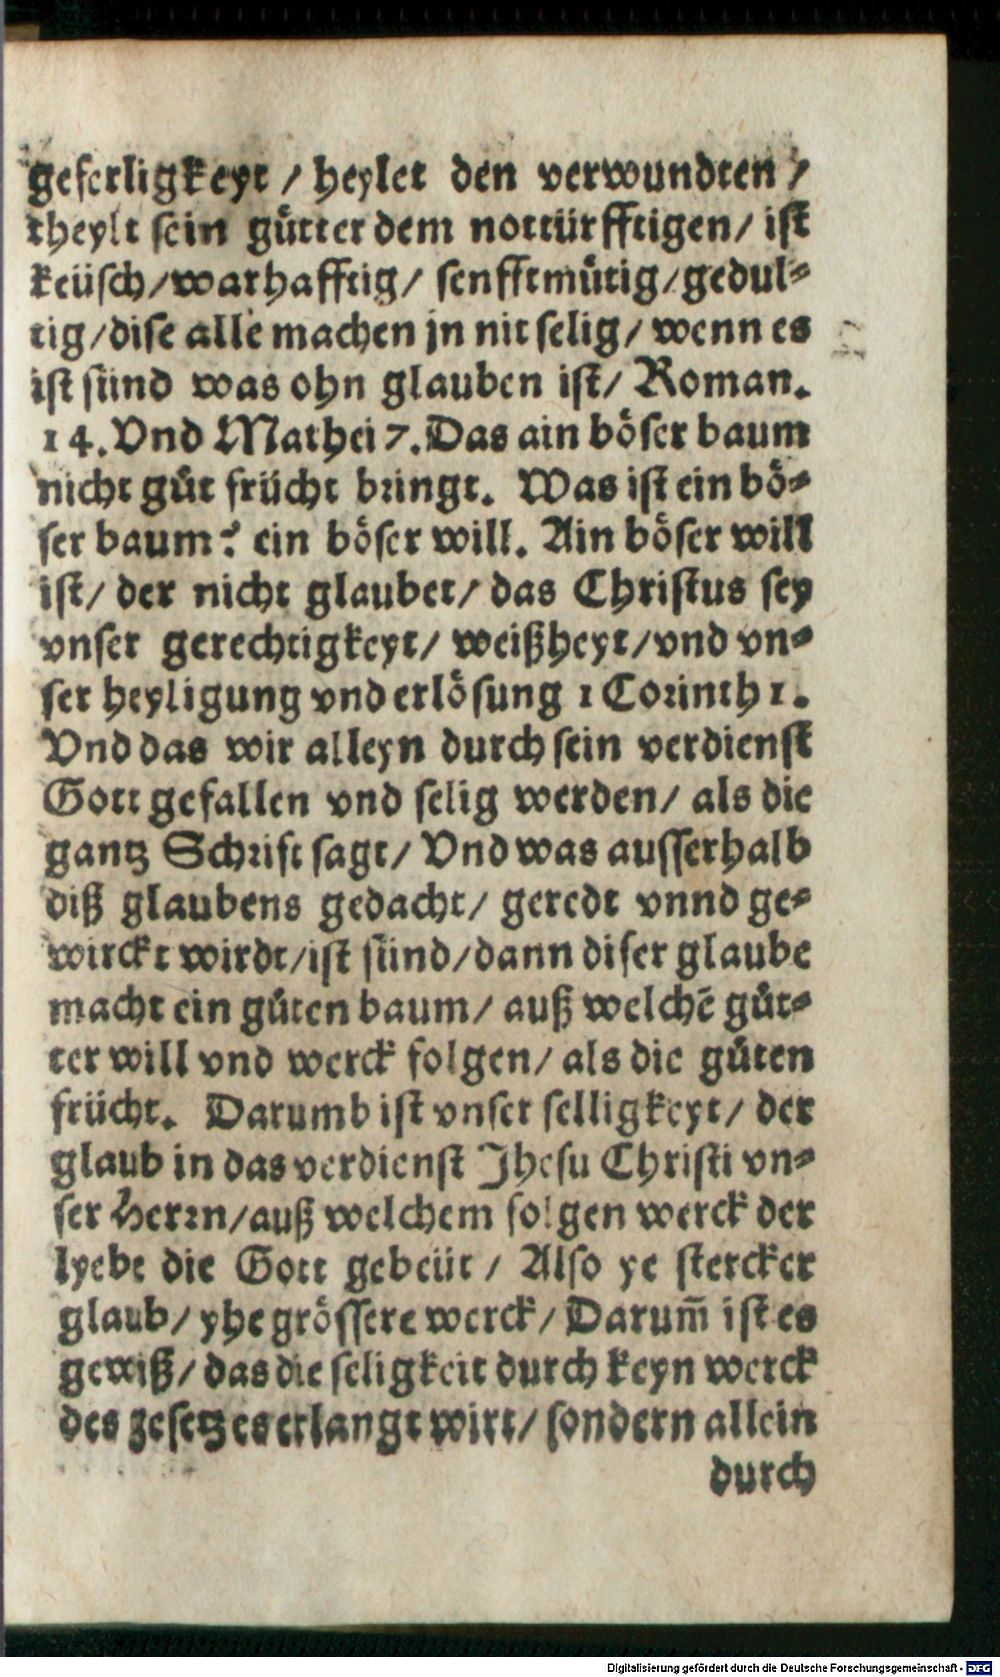 geferligkeyt / heylet den verwundten /
theylt sein gůtter dem nottürfftigen / ist
keüsch / warhafftig / senfftmůtig / gedul⸗
tig / dise alle machen jn nit selig / wenn es
ist sünd was ohn glauben ist / Roman.
14. Vnd Mathei 7. Das ain böser baum
nicht gůt frücht bringt. Was ist ein bö⸗
ser baum? ein böser will. Ain böser will
ist / der nicht glaubet / das Christus sey
vnser gerechtigkeyt / weißheyt / vnd vn⸗
ser heyligung vnd erlösung 1 Corinth 1.
Vnd das wir alleyn durch sein verdienst
Gott gefallen vnd selig werden / als die
gantz Schrift sagt / Vnd was ausserhalb
diß glaubens gedacht / geredt vnnd ge⸗
wirckt wirdt / ist sünd / dann diser glaube
macht ein gůten baum / auß welchē gůt⸗
ter will vnd werck folgen / als die gůten
frücht. Darumb ist vnser selligkeyt / der
glaub in das verdienst Jhesu Christi vn⸗
ser Herrn / auß welchem folgen werck der
lyebe die Gott gebeüt / Also ye stercker
glaub / yhe grössere werck / Darum̄ ist es
gewiß / das die seligkeit durch keyn werck
des gesetzes erlangt wirt / sondern allein
durch
Digitalisierung gefördert durch die Deutsche Forschungsgemeinschaft - DFG